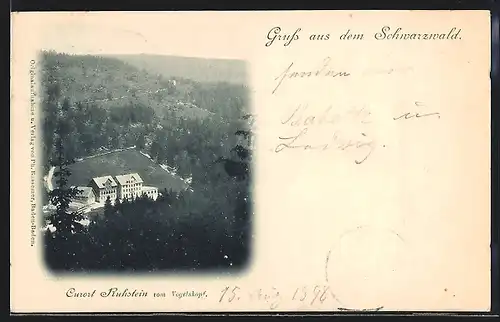 Gruß aus dem Schwarzwald.
senden
u.
Ludwig.
Originalaufnahme u. Verlag von Ph. Bussemer, Baden-Baden.
Curort Ruhstein vom Vogelskopf.
15. Aug 1898